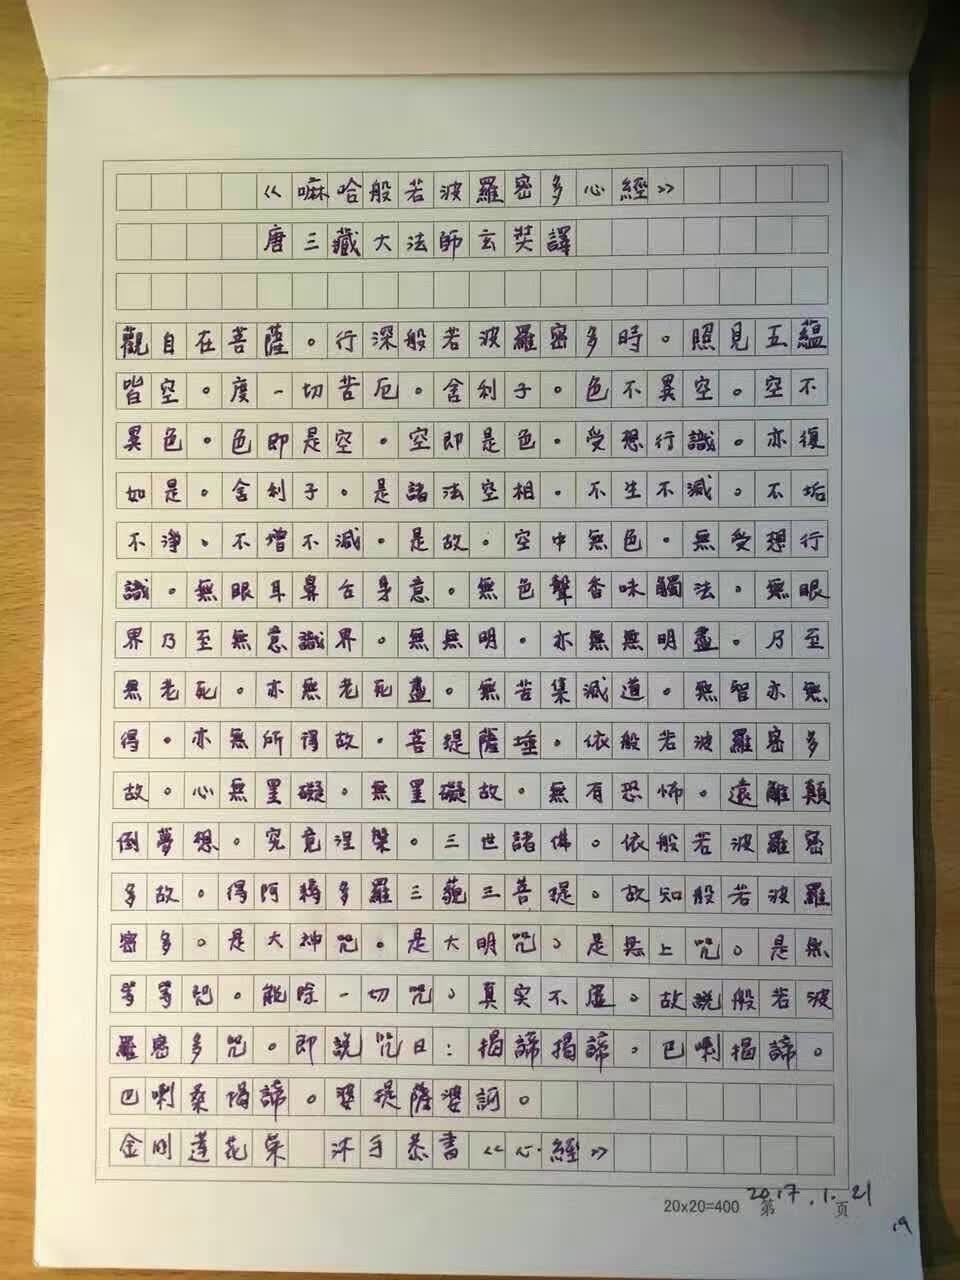 《嘛哈般若波羅密多心經》
唐三藏大法師玄奘譯
觀自在菩薩。行深般若波羅密多時。照見五蘊
皆空。度一切苦厄。舍利子。色不異空。空不
異色。色即是空。空即是色。受想行識。亦復
如是。舍利子。是諸法空相。不生不滅。不垢
不淨。不增不減。是故。空中無色。無受想行
識。無眼耳鼻舌身意。無色聲香味觸法。無眼
界乃至無意識界。無無明。亦無無明盡。乃至
無老死。亦無老死盡。無苦集滅道。無智亦無
得。亦無所得故。菩提薩埵。依般若波羅密多
故。心無罣礙。無罣礙故。無有恐怖。遠離顛
倒夢想。究竟涅槃。三世諸佛。依般若波羅密
多故。得阿耨多羅三藐三菩提。故知般若波羅
密多。是大神咒。是大明咒。是無上咒。是無
等等咒。能除一切咒。真实不虛。故說般若波
羅密多咒。即說咒曰：揭諦揭諦。巴喇揭諦。
巴喇桑揭諦。婆提薩婆訶。
金刚莲花荣 沐手恭書《心經》
2017.1.21
20x20=400 第 页
19